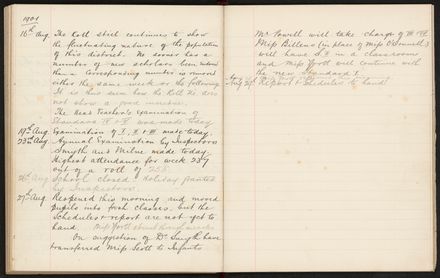 1901
16th Aug. The Roll still continues to show
the fluctuating nature of the population
of this district. No sooner has a
number of new scholars been
than a corresponding number is removed
either the same week or the following
It is thus seen how the Roll No. does
not show a good increase.
The Head Teacher's Examination of
Standard IV & V was made today
19th Aug. Examination of I, II & III made today.
23rd Aug. Annual Examination by Inspectors
Smyth and Milne made today.
Highest attendance for week 239
out of a roll of 258.
26th Aug. School closed. Holiday granted
by Inspectors.
27th Aug. Reopened this morning and moved
pupils into fresh classes, but the
Schedules & report are not yet to
hand. Miss Forth absent through
On suggestion of Dr. Smyth have
transferred Miss Scott to Infants
Mr. Powell will take charge of
Miss Billens (in place of Miss O'Donnell)
will have S. in a classroom
and Miss Forth will continue with
the new Standard I.
Aug 29th Report & Schedules to hand.